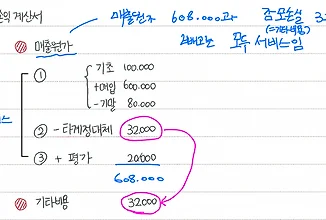 손익계산서
매출원가 608.000과 감모손실 3
(=기타비용)
모두 서비스임
매출원가
① 기초 100.000
+매입 600.000
-기말 80.000
② - 타계정대체 32000
③ + 평가 20000
608.000
기타비용 32000